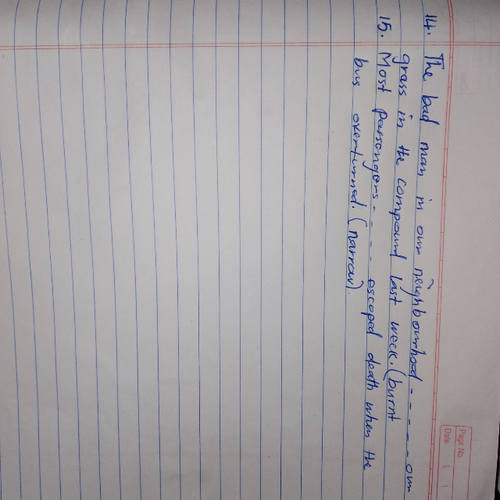 Page No.
Date
14. The bad man in our neighbourhood - - - - - our
grass in the compound last week. (burnt
15. Most passengers - - - - escaped death when the
bus overturned. (narrow).